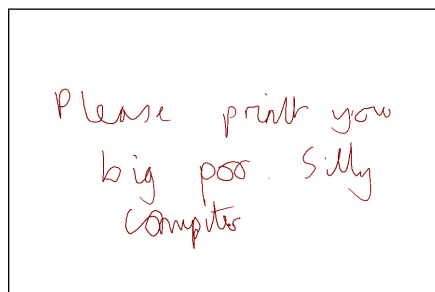 Please print you
big poo. Silly
computer